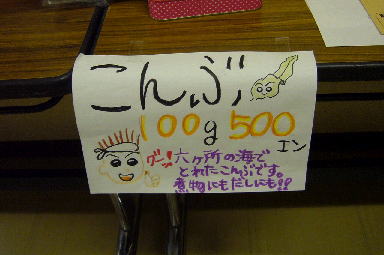 こんぶ
100g 500エン
グー! 六ヶ所の海で
とれたこんぶです。
煮物にもだしにも!!